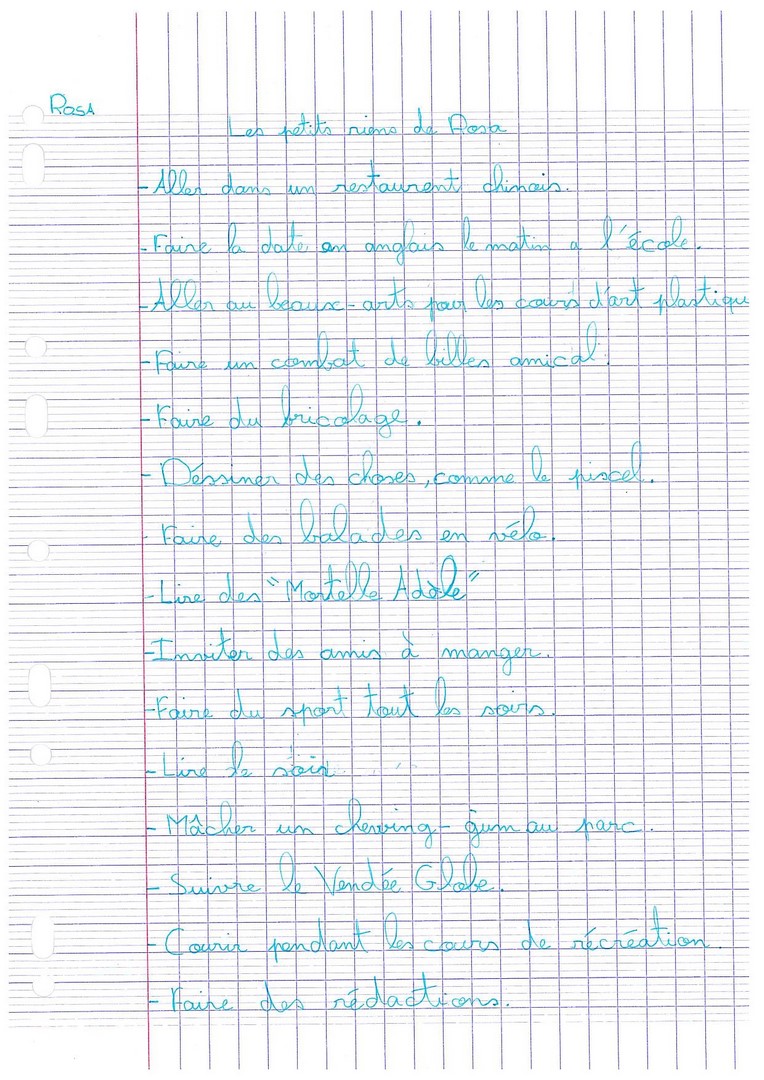 RosA
Les petits riens de Rosa
- Aller dans un restaurent chinois.
- Faire la date en anglais le matin a l'école.
- Aller au beaux-arts pour les cours d'art plastique
- Faire un combat de billes amical.
- Faire du bricolage.
- Déssiner des choses, comme le piscel.
- Faire des balades en vélo.
- Lire des "Mortelle Adèle"
- Inviter des amis à manger.
- Faire du sport tout les soirs.
- Lire le soir
- Mâcher un chewing-gum au parc.
- Suivre le Vendée Globe.
- Courir pendant les cours de récréation.
- Faire des rédactions.